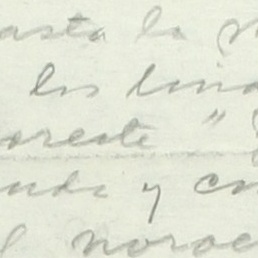 asta la
los lind
oreste "
unda y co
noroe